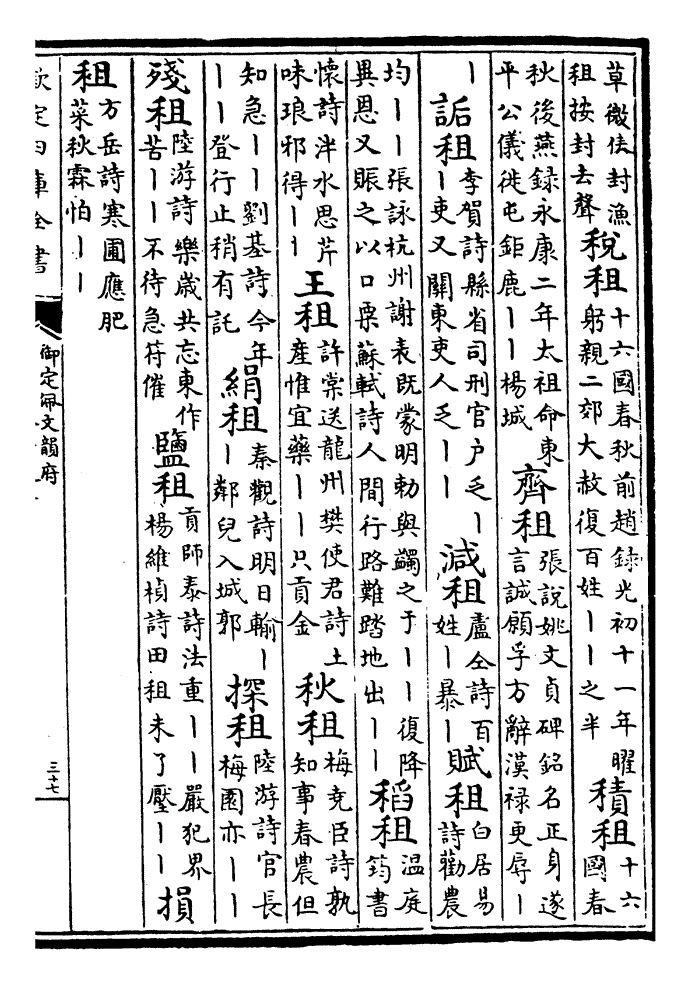 草微伕封漁
租按封去聲
稅租
十六國春秋前趙錄光初十一年曜
躬親二郊大赦復百姓丨丨之半
積租
十六
國春
秋後燕錄永康二年太祖命東
平公儀徙屯鉅鹿丨丨楊城
齊租
張說姚文貞碑銘名正身遂
言誠願孚方辭漢祿更辱丨
丨
詬租
李賀詩縣省司刑官户乏丨
丨吏又關東吏人乏丨丨
減租
盧仝詩百
姓丨暴丨
賦租
白居易
詩勸農
均丨丨張詠杭州謝表既蒙明勅與蠲之于丨丨復降
異恩又賑之以口粟蘇軾詩人間行路難踏地出丨丨
稻租
溫庭
筠書
懷詩泮水思芹
味琅邪得丨丨
王租
許棠送龍州樊使君詩土
產惟宜藥丨丨只貢金
秋租
梅堯臣詩孰
知事春農但
知急丨丨劉基詩今年
丨丨登行止稍有託
絹租
秦觀詩明日輸丨
丨鄰兒入城郭
探租
陸游詩官長
梅園亦丨丨
殘租
陸游詩樂歲共忘東作
苦丨丨不待急符催
鹽租
貢師泰詩法重丨丨嚴犯界
楊維楨詩田租未了壓丨丨
損
租
方岳詩寒圃應肥
菜秋霖怕丨丨
欽定四庫全書
御定佩文韻府
三十七